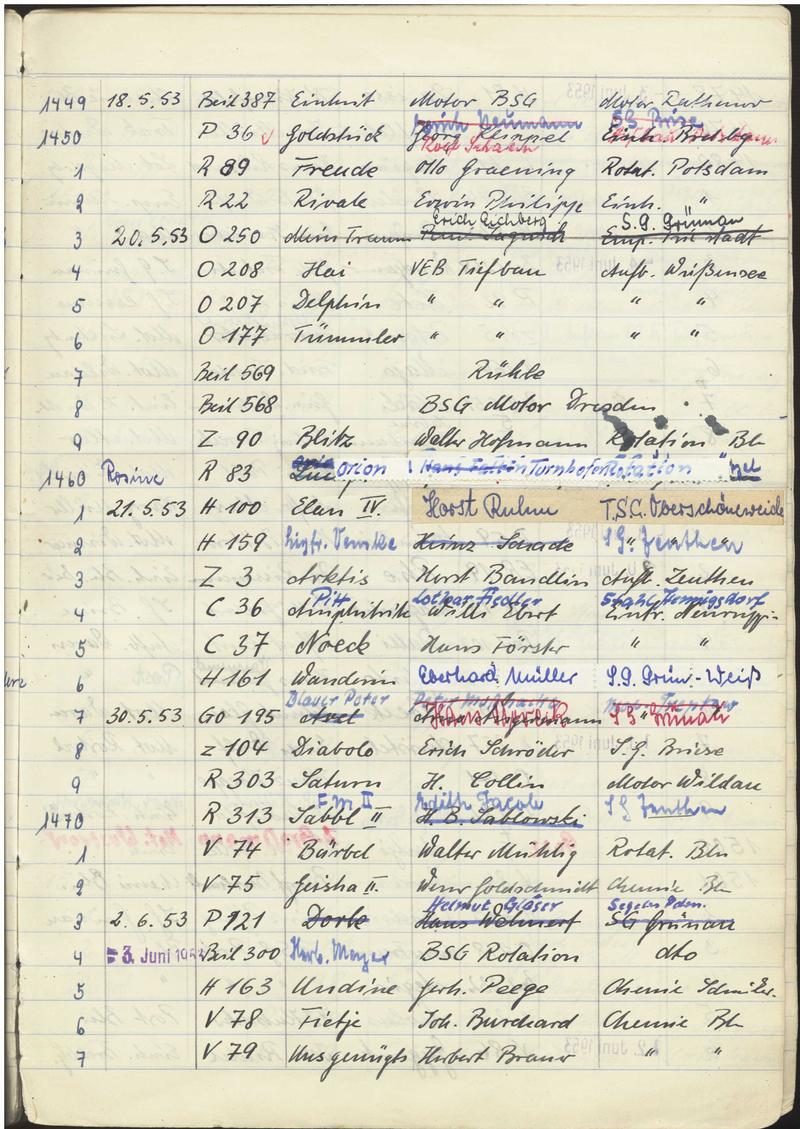 1449 18.5.53 Beil 387 Einheit Motor BSG Motor Rathenow
Neumann SG Briese
1450 P 36 Goldstück Georg
Rolf
1 R 89 Freude Otto Graening Rotat. Potsdam
2 R 22 Rivale Erwin Philipp Einh. "
Erich Eichberg S.G. Grünau
3 20.5.53 O 250 Mein Traum
4 O 208 Hai VEB Tiefbau Aufb. Weißensee
5 O 207 Delphin " " " "
6 O 177 Tümmler " " " "
7 Beil 569 Rühle
8 Beil 568 BSG Motor Dresden
9 Z 90 Blitz Walter Hofmann Rotation Bln
1460 Rosine R 83 Orion Turnhofer Rotation
1 21.5.53 H 100 Elan IV. Horst Ruhm T.S.C. Oberschöneweide
2 H 159 Heinz Schade S.G. Zeuthen
3 Z 3 Arktis Horst Bandlin Aufb. Zeuthen
Pitt Lothar Fiedler Stahl Hennigsdorf
4 C 36 Amphitrite Willi Ebert
5 C 37 Noeck Hans Förster " "
6 H 161 Wanderin Eberhard Müller S.G. Grün-Weiß
Blauer Peter Peter
7 30.5.53 GO 195 Axel
8 Z 104 Diabolo Erich Schröder S.G. Briese
9 R 303 Saturn H. Collin Motor Wildau
Edith Jacob SG Zeuthen
1470 R 313 II H. B. Sablowski
1 V 74 Bärbel Walter Mühlig Rotat. Bln
2 V 75 Geisha II. Wern. Goldschmidt Chemie Bln
Helmut Gläser
3 2.6.53 P 121 Dorle Hans SG Grünau
4 3. Juni Beil 300 Herb. Meyer BSG Rotation dto
5 H 163 Undine Gerh. Peege Chemie
6 V 78 Fietje Joh. Burchard Chemie Bln
7 V 79 Herbert Brauer " "